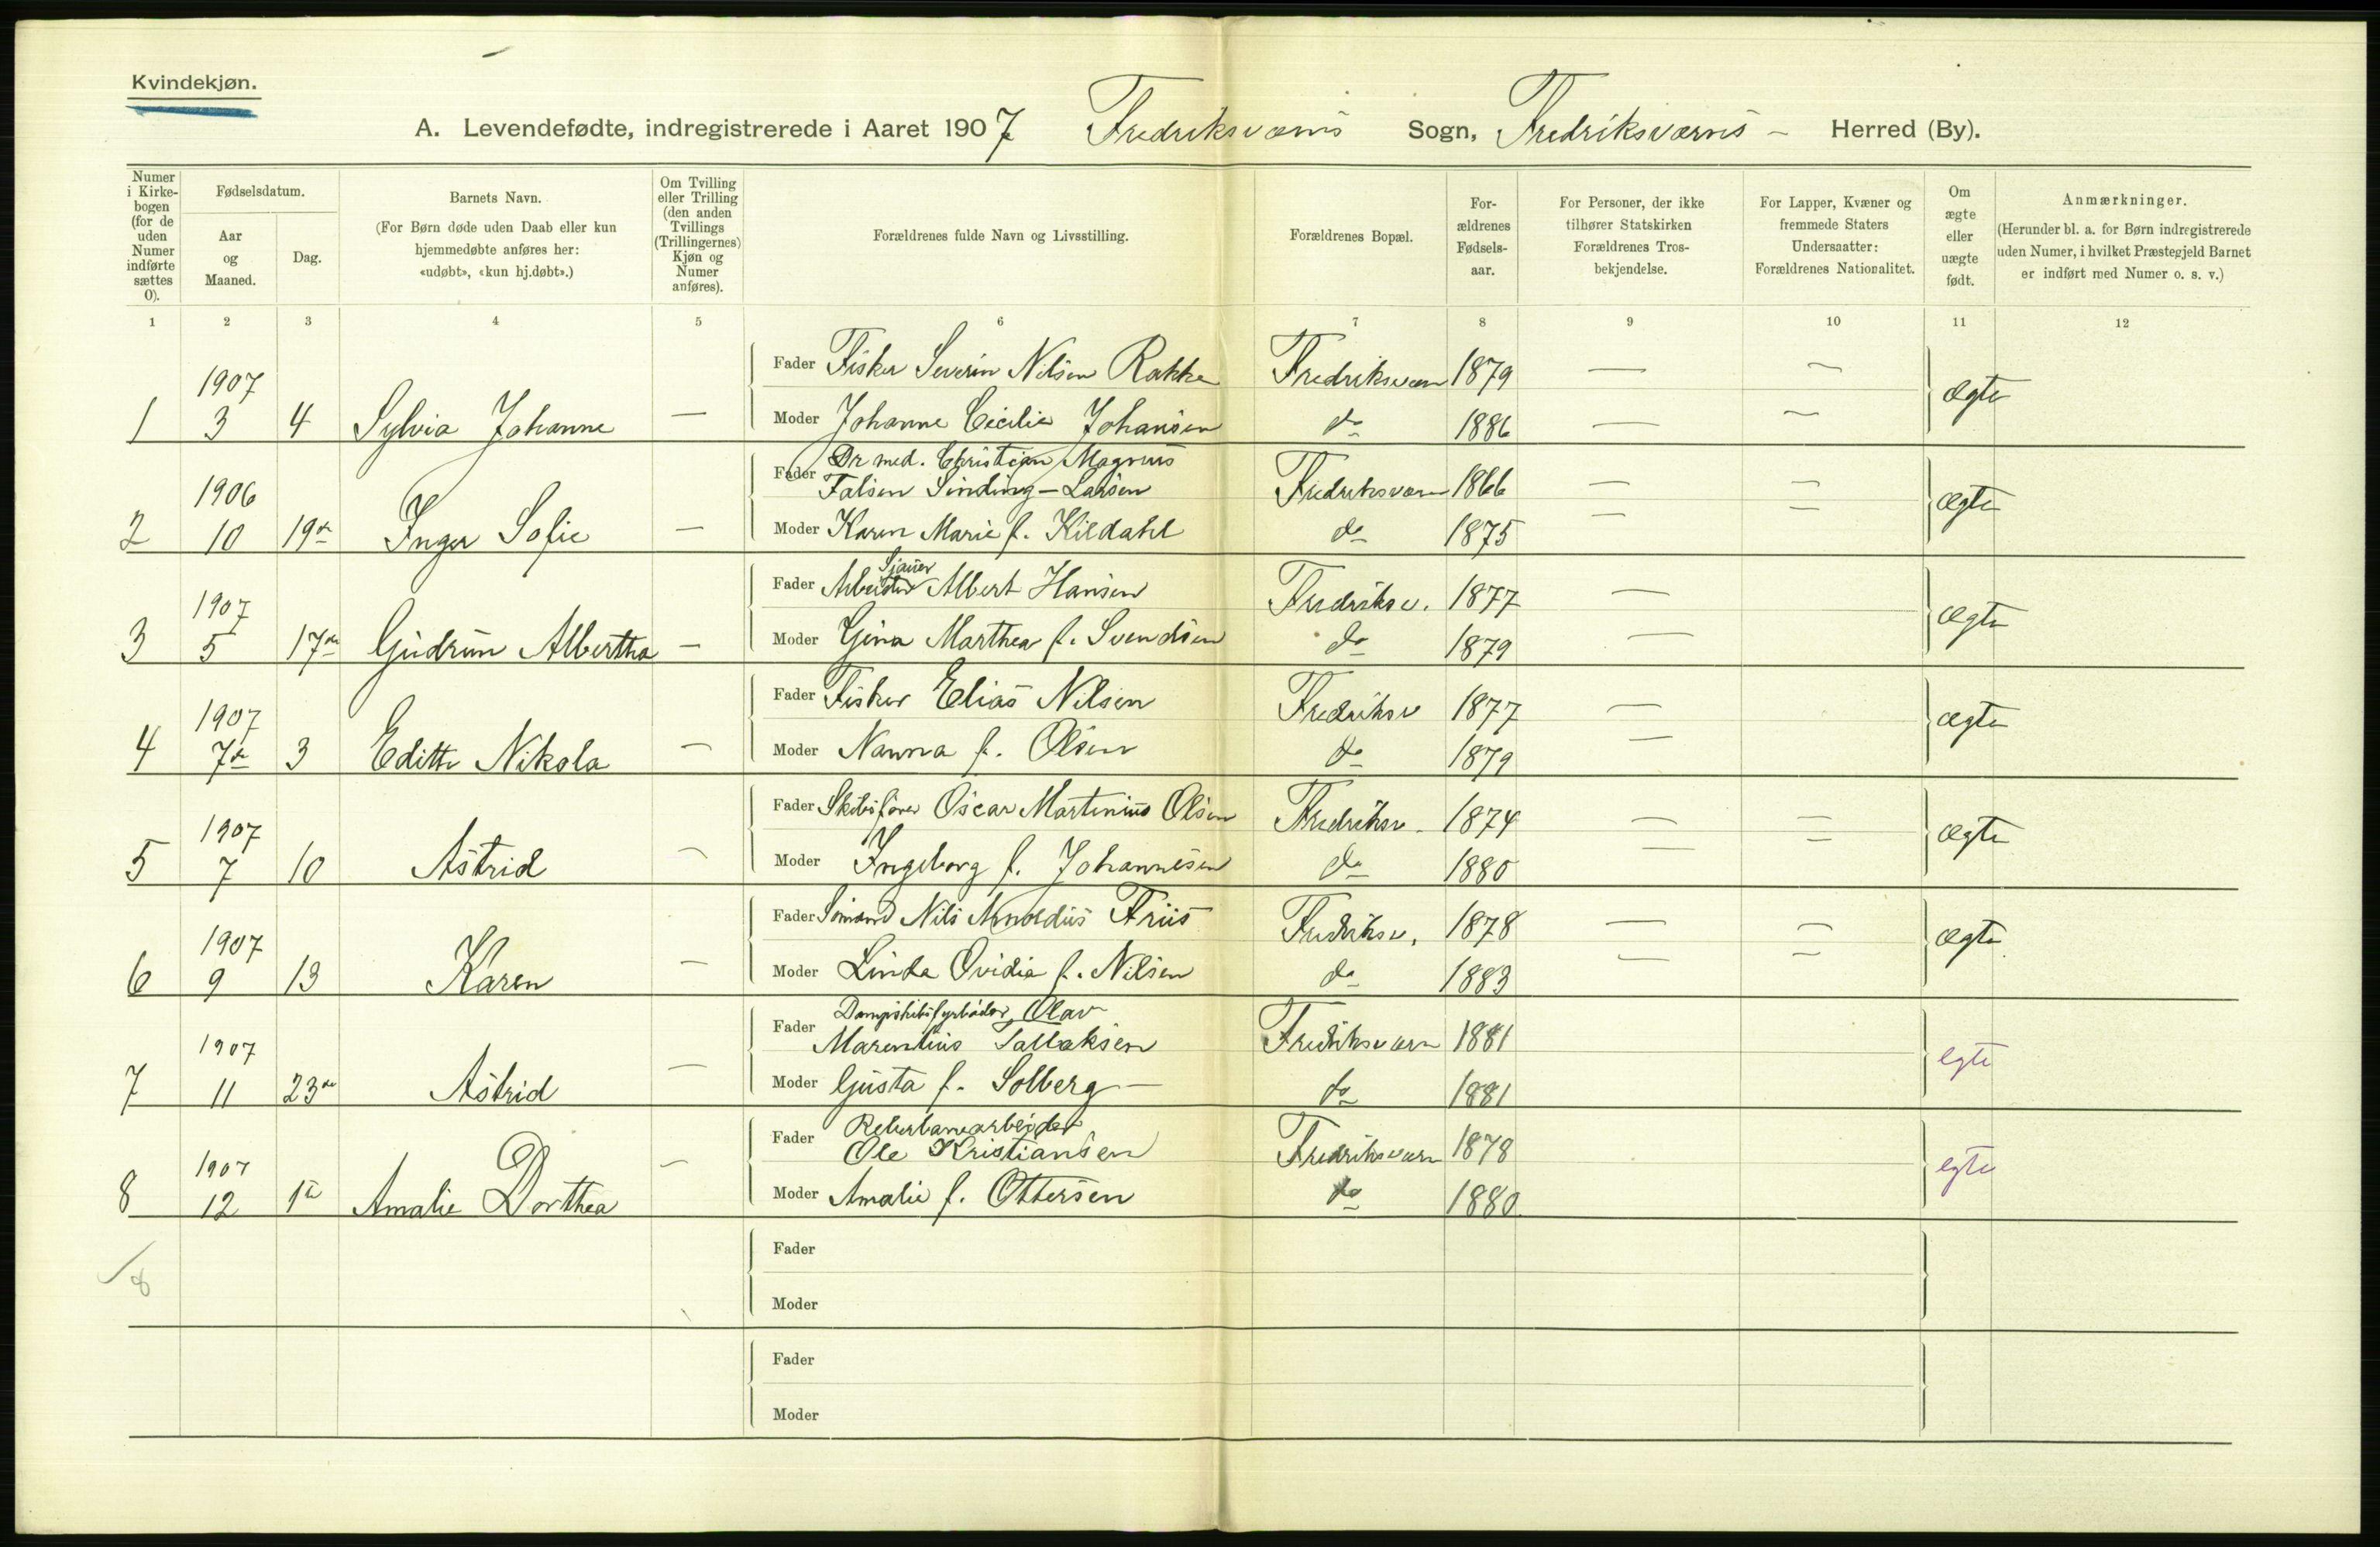 Kvindekjøn.
A. Levendefødte, indregistrerede i Aaret 1907 Fredriksværns Sogn, Fredriksværns - Herred (By).
Numer i Kirke-bogen (for de uden Numer indførte sættes 0).
Fødselsdatum.
Aar og Maaned.
Dag.
Barnets Navn.
(For Børn døde uden Daab eller kun hjemmedøbte anføres her: «udøbt», «kun hj.døbt».)
Om Tvilling eller Trilling (den anden Tvillings (Trillingernes) Kjøn og Numer anføres).
Forældrenes fulde Navn og Livsstilling.
Forældrenes Bopæl.
For-ældrenes Fødsels-aar.
For Personer, der ikke tilhører Statskirken Forældrenes Tros-bekjendelse.
For Lapper, Kvæner og fremmede Staters Undersaatter: Forældrenes Nationalitet.
Om ægte eller uægte født.
Anmærkninger.
(Herunder bl. a. for Børn indregistrerede uden Numer, i hvilket Præstegjeld Barnet er indført med Numer o. s. v.)
1 2 3 4 5 6 7 8 9 10 11 12
1907
Fader Fisker Severin Nilsen Rakke Fredriksværn 1879 — —
1 3 4 Sylvia Johanne — Moder Johanne Cecilie Johansen do 1886 — — ægte
1906
Fader Dr med. Christian Magnus
Falsen Sinding-Larsen Fredriksværn 1866 — —
2 10 19de Inger Sofie — Moder Karen Marie f. Kildahl do 1875 — — ægte
1907
Sjauer
Fader Arbeider Albert Hansen Fredriksv. 1877 —
3 5 17de Gudrun Albertha — Moder Gina Marthea f. Svendsen do 1879 — ægte
1907
Fader Fisker Elias Nilsen Fredriksv 1877 —
4 7de 3 Edith Nikola — Moder Nanna f. Olsen do 1879 — ægte
1907
Fader Skibsfører Oscar Martinius Olsen Fredriksv. 1874 — —
5 7 10 Astrid — Moder Ingeborg f. Johannesen do 1880 — — ægte
1907
Fader Sømand Nils Arnoldus Friis Fredriksv. 1878 — —
6 9 13 Karen — Moder Linda Ovidia f. Nilsen do 1883 — — ægte
1907
Fader Dampskibsfyrbøder, Olav
Marentius Tallaksen Fredriksværn 1881
7 11 23de Astrid — Moder Gusta f. Solberg — do 1881 egte
1907
Fader Reberbanearbeider
Ole Kristiansen Fredriksværn 1878
8 12 1te Amalie Dorthea — Moder Amalie f. Ottersen do 1880 egte
Fader
8
Moder
Fader
Moder